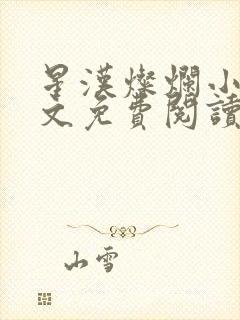 星漢燦爛小
文免費閱讀
山雪